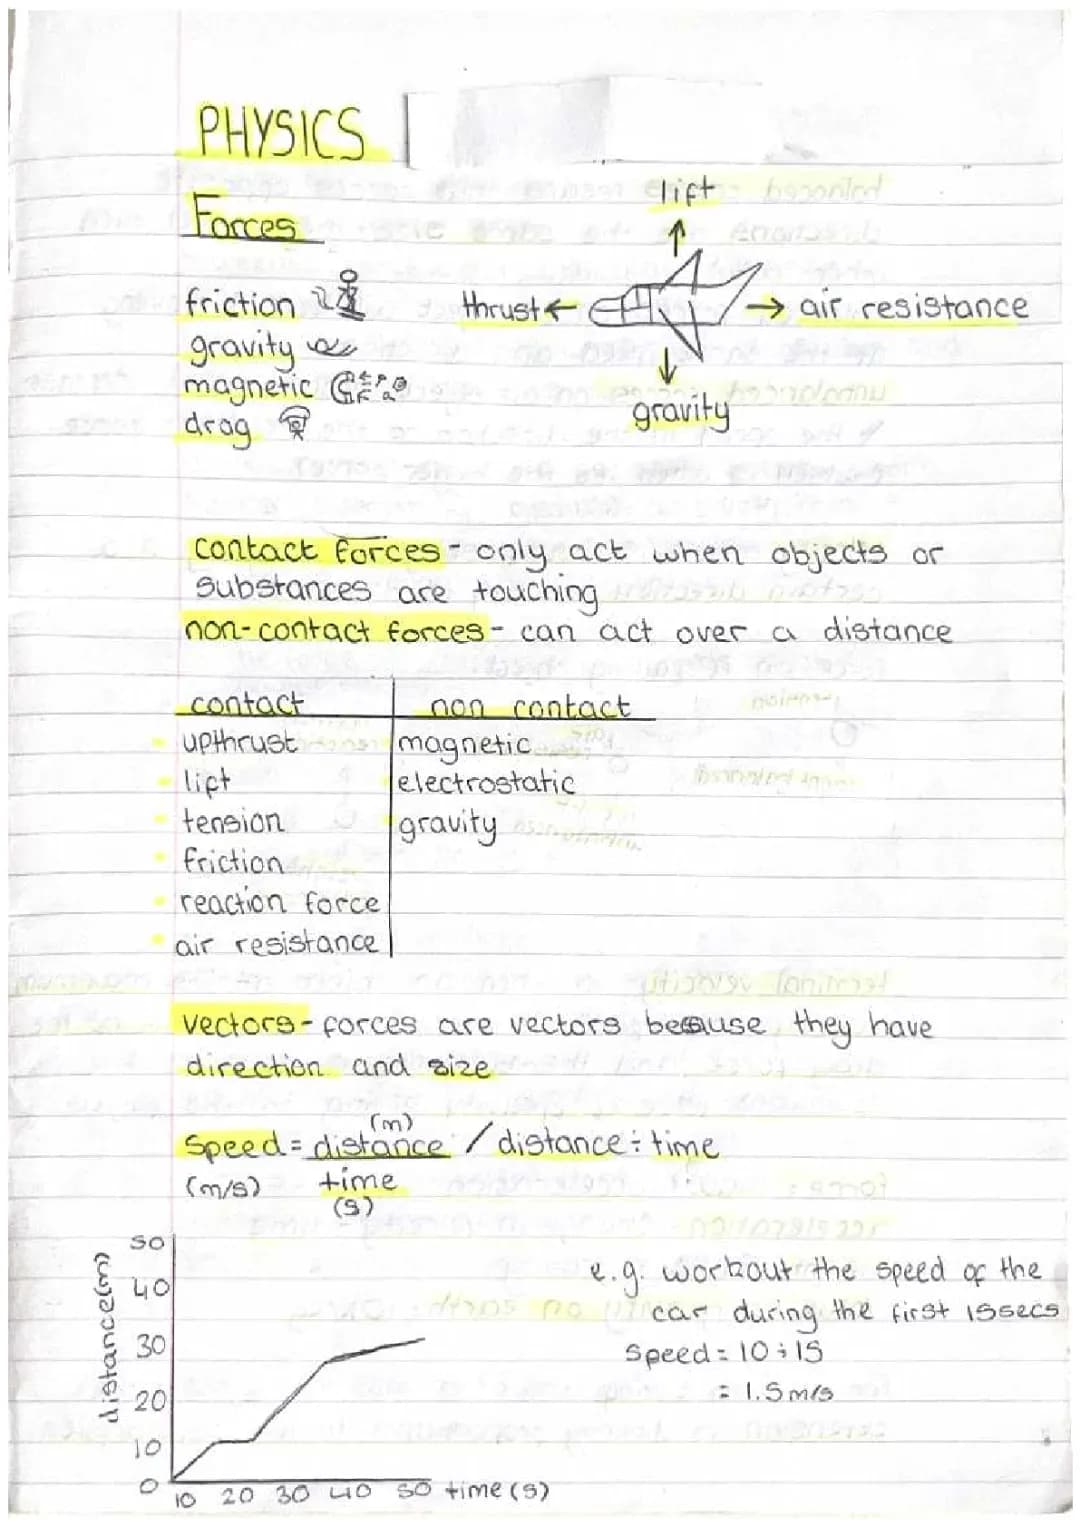 PHYSICS
Forces
lift
friction
thrust
air resistance
gravity
magnetic
drag
gravity
contact forces - only act when objects or
substances are touching
non-contact forces - can act over a distance
contact
non contact
upthrust
magnetic
lift
electrostatic
tension
gravity
friction
reaction force
air resistance
vectors - forces are vectors because they have
direction and size
(m)
speed = distance / distance ÷ time
(m/s) time
(s)
distance(m)
50
40
30
20
10
0
10 20 30 40 50 time (s)
e.g. workout the speed of the
car during the first 15secs
speed = 10 ÷ 15
= 1.5 m/s